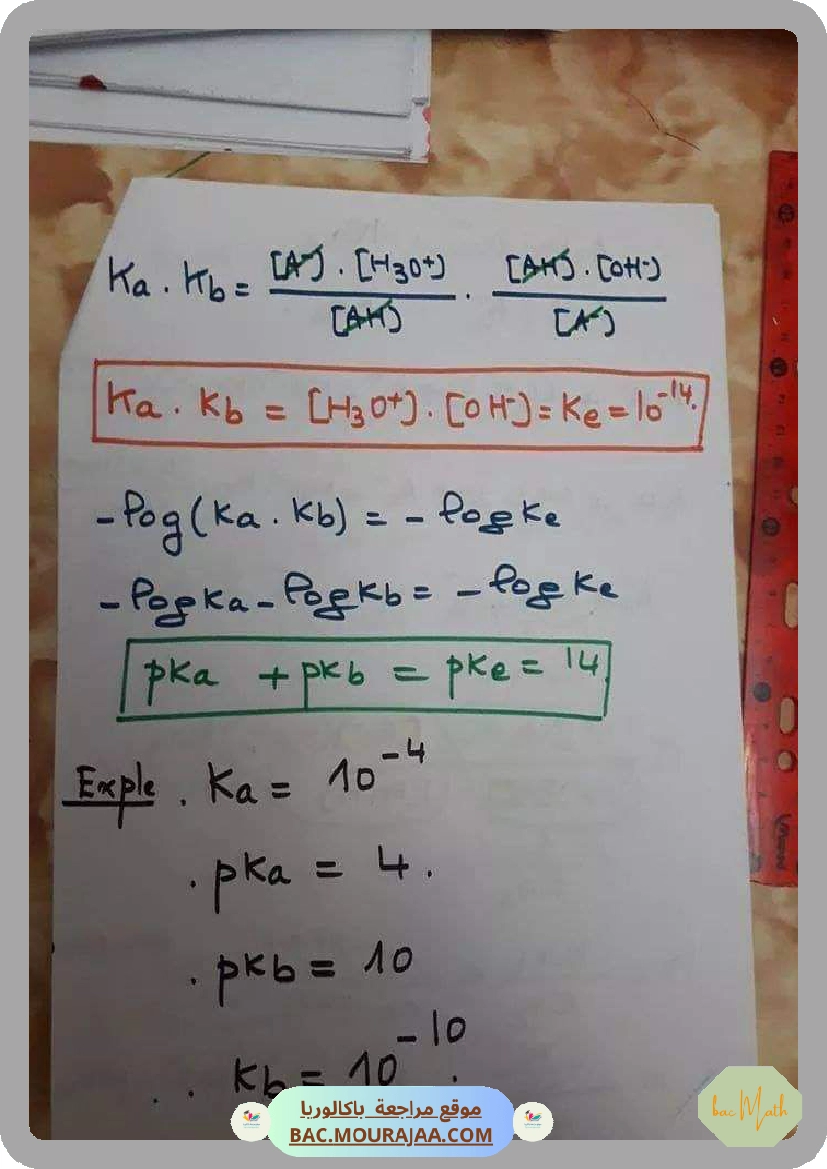 Ka . Kb = [A-] . [H3O+] / [AH] . [AH] . [OH-] / [A-]
Ka . Kb = [H3O+] . [OH-] = Ke = 10^-14.
-log(Ka . Kb) = - log Ke
-log Ka - log Kb = - log Ke
pKa + pKb = pKe = 14
Exple . Ka = 10^-4
. pKa = 4 .
. pKb = 10
. . Kb = 10^-10 .
موقع مراجعة باكالوريا
BAC.MOURAJAA.COM
bac Math